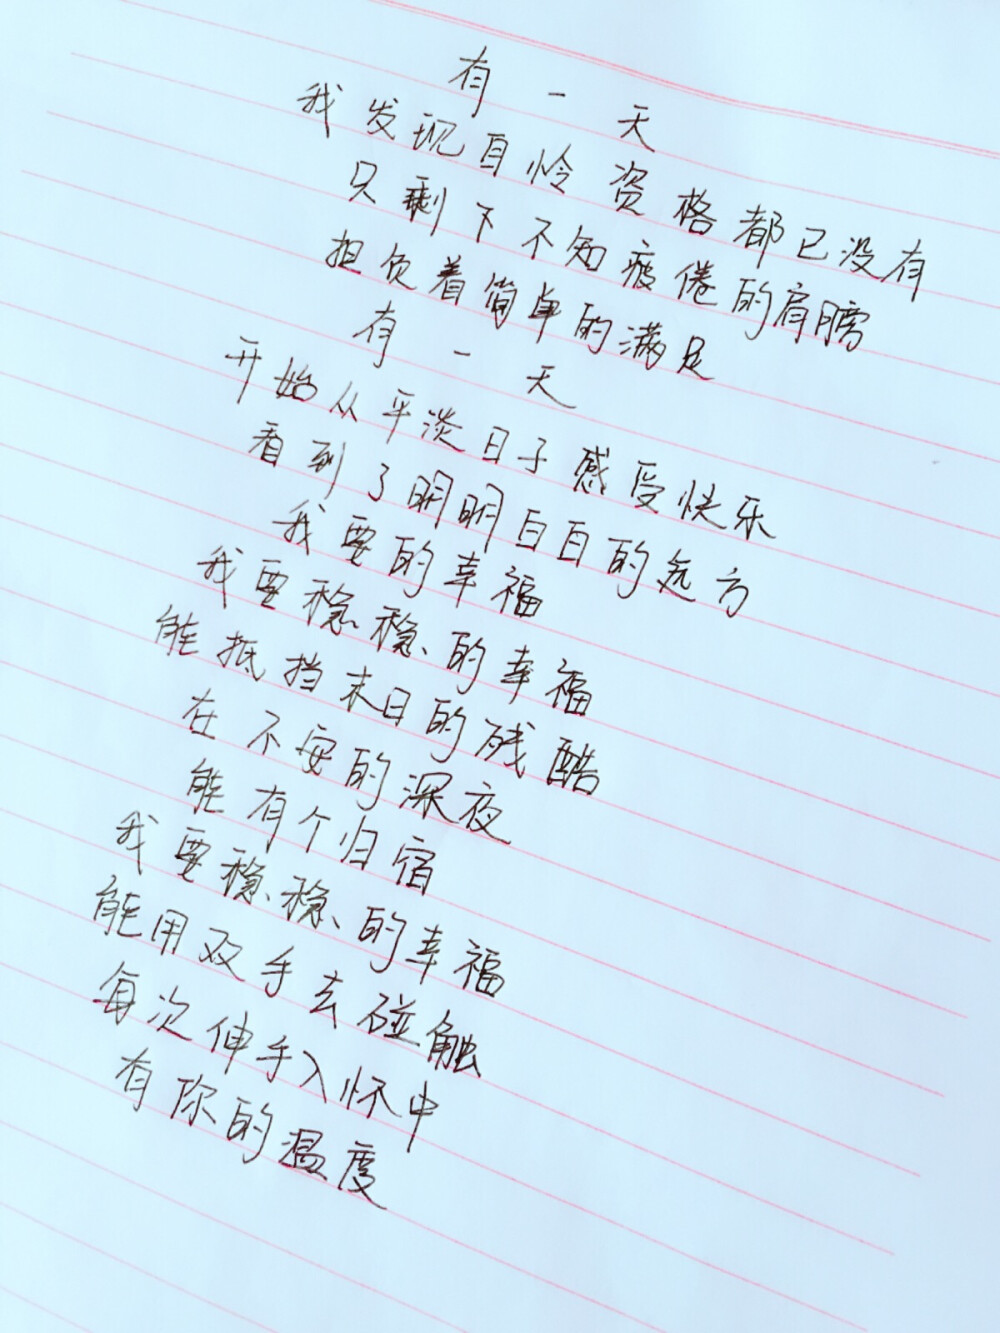 有一天
我发现自怜资格都已没有
只剩下不知疲倦的肩膀
担负着简单的满足
有一天
开始从平淡日子感受快乐
看到了明明白白的远方
我要的幸福
我要稳稳的幸福
能抵挡末日的残酷
在不安的深夜
能有个归宿
我要稳稳的幸福
能用双手去碰触
每次伸手入怀中
有你的温度